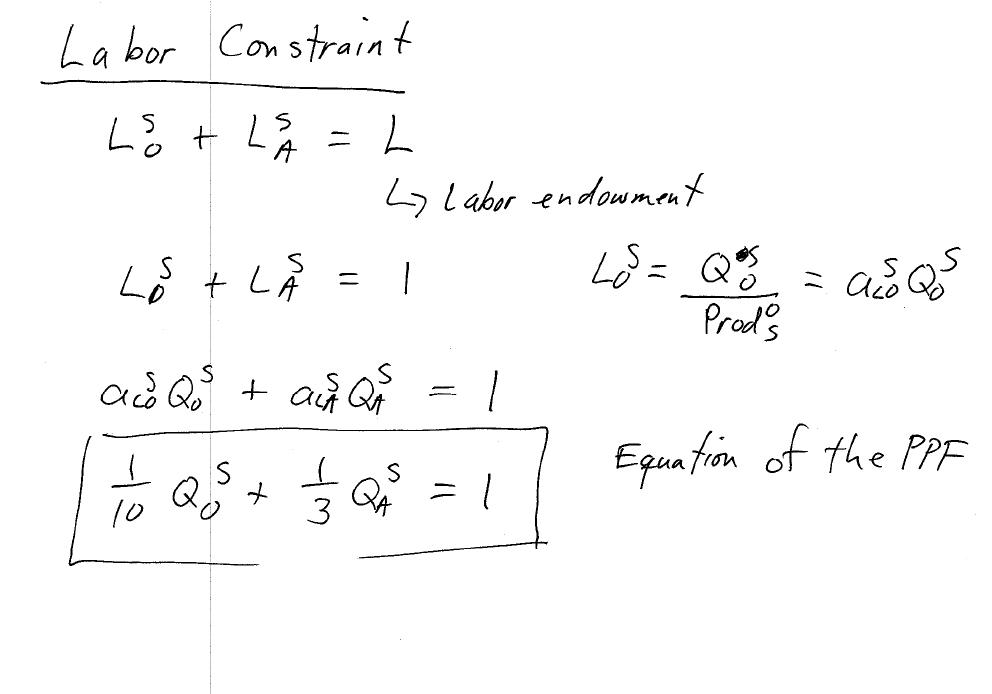 Labor Constraint
L_O^S + L_A^S = L
↳ Labor endowment
L_O^S + L_A^S = 1
L_O^S = Q_O^S / Prod_S^O = a_LO^S Q_O^S
a_LO^S Q_O^S + a_LA^S Q_A^S = 1
1/10 Q_O^S + 1/3 Q_A^S = 1
Equation of the PPF